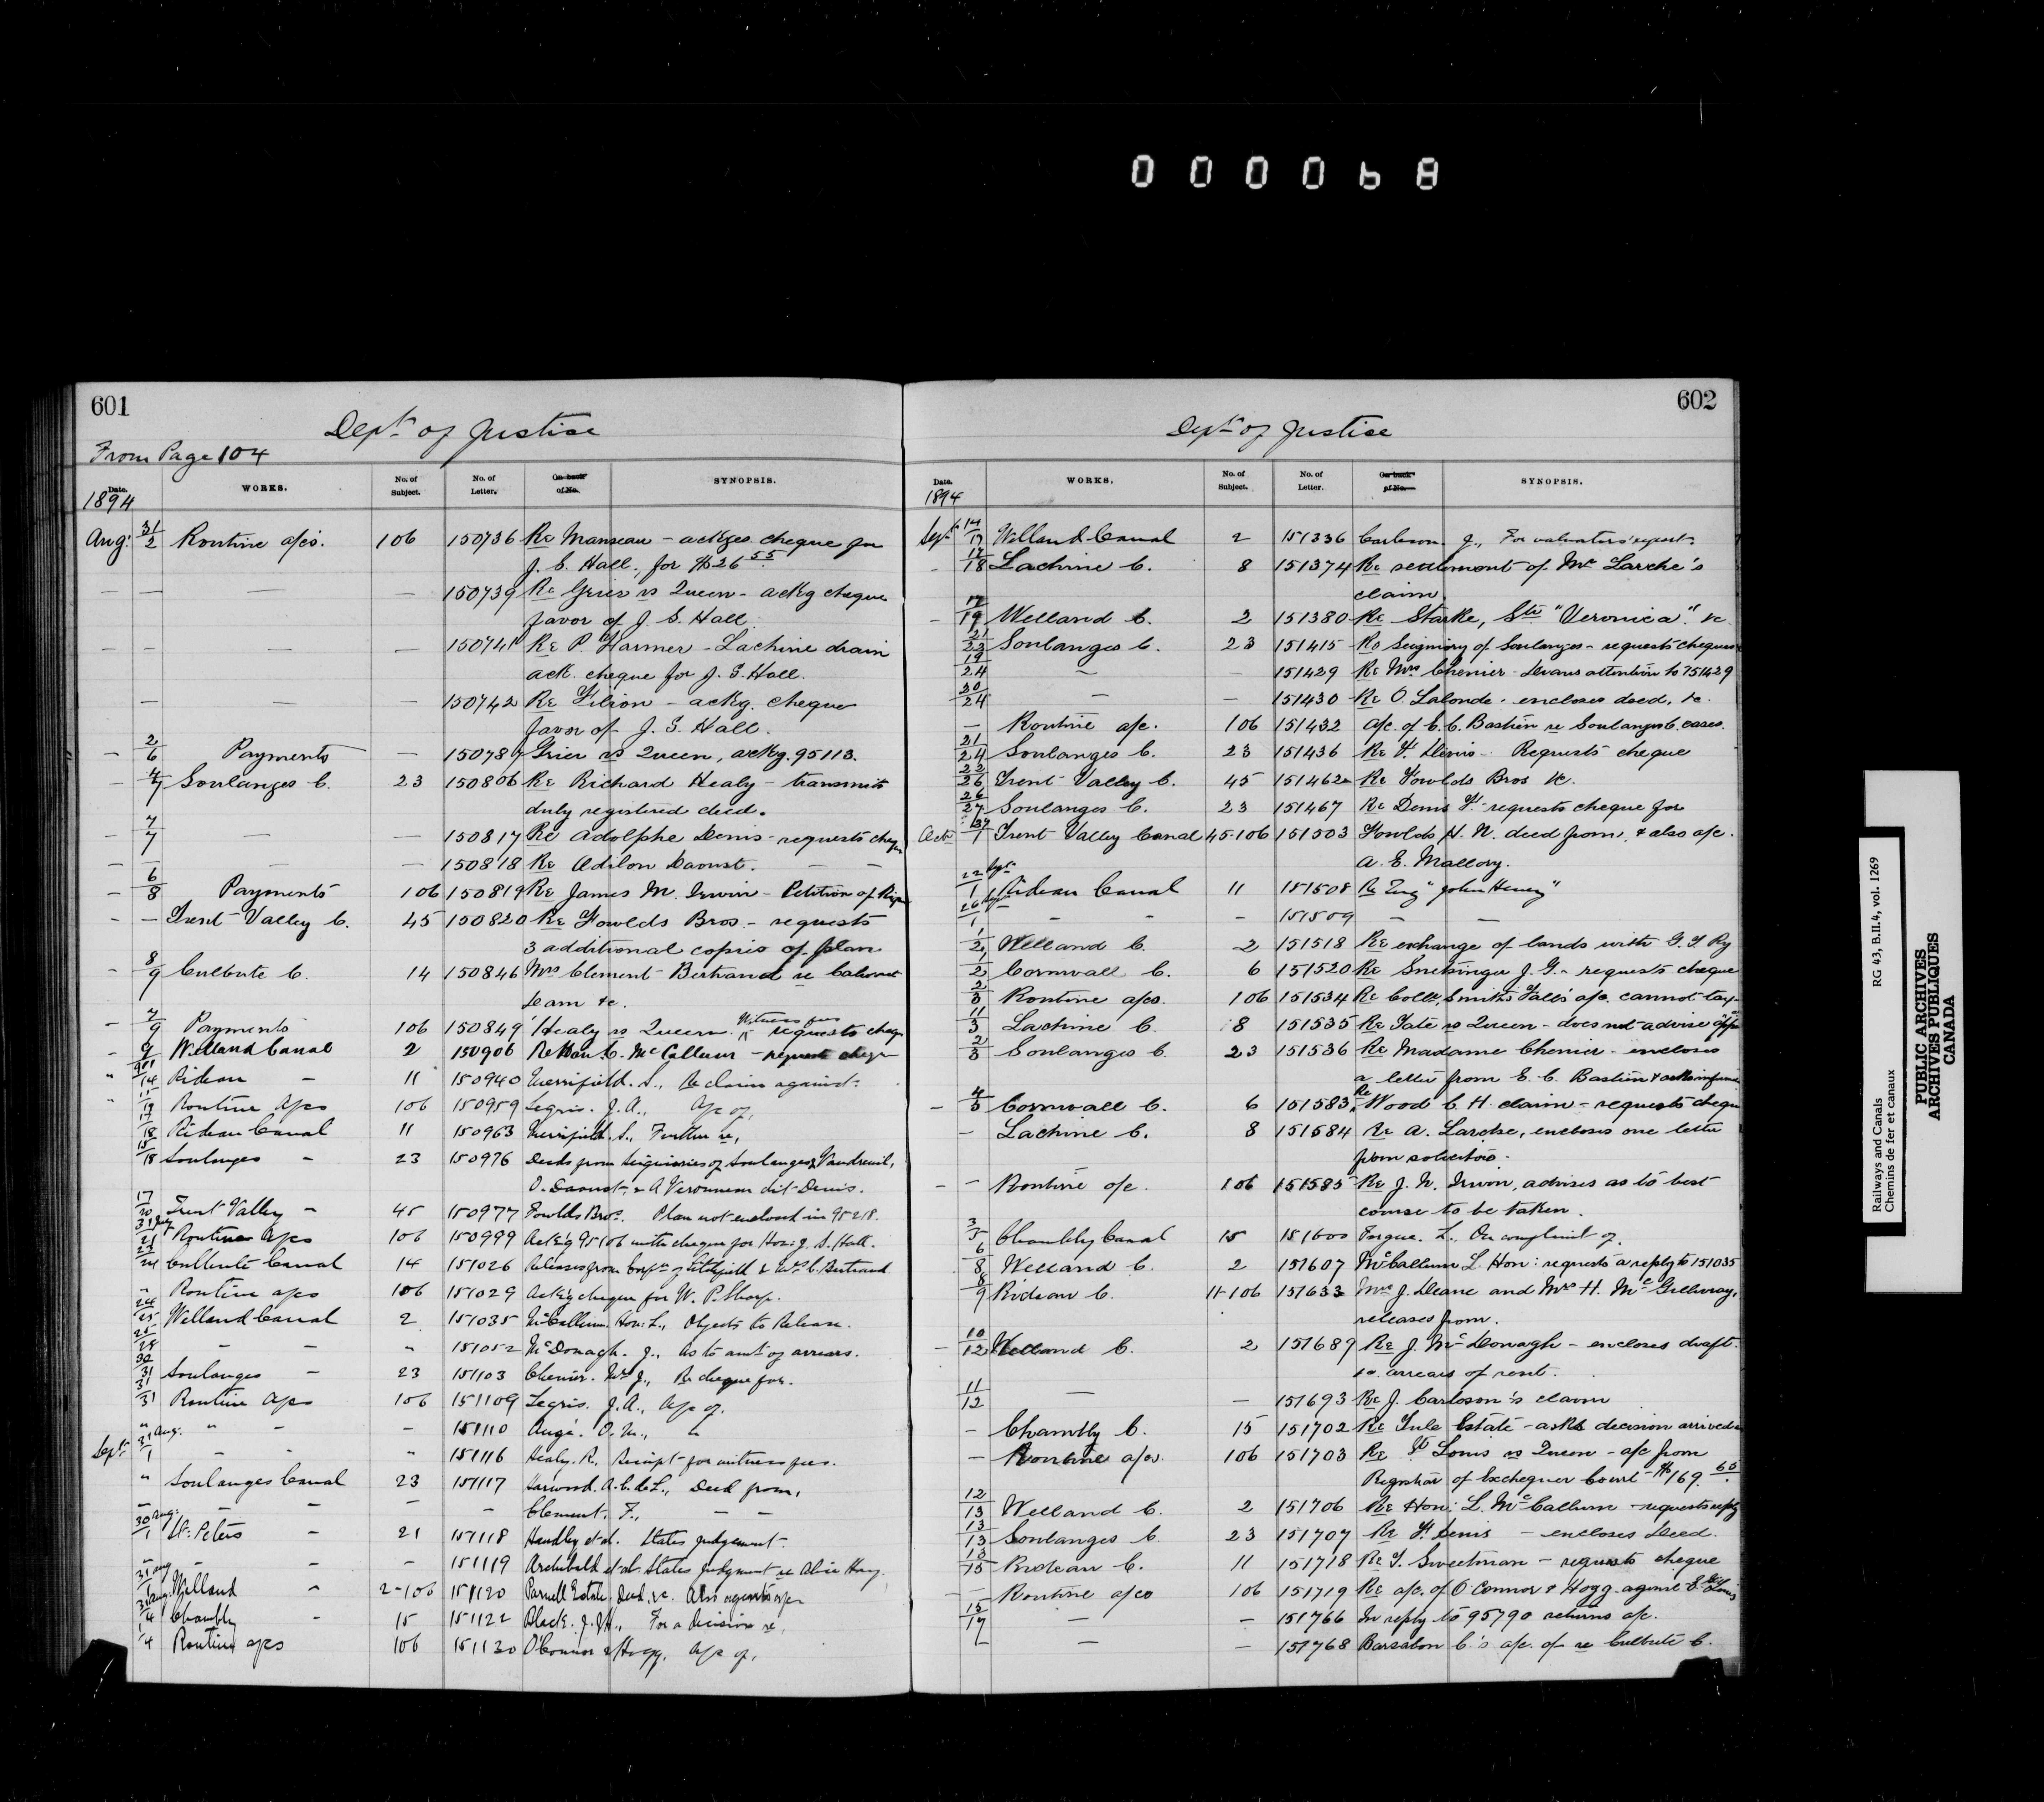 0 0 0 0 6 8
601
Dept. of Justice
From Page 104
Date. WORKS. No. of Subject. No. of Letter. On back of No. SYNOPSIS.
1894
Aug. 31/2 Routine a/cs. 106 150736 Re Manseau - ackges cheque for
J. S. Hall, for $26 55.
— — — — 150739 Re Grier vs Queen - ackg cheque
favor of J. S. Hall.
— — — — 150741 Re P. Harmer - Lachine drain
ack. cheque for J. S. Hall.
— — — — 150742 Re Filion - ackg. cheque
favor of J. S. Hall.
— 2/6 Payments — 150789 Grier vs Queen, ackg. 95113.
— 4/7 Soulanges C. 23 150806 Re Richard Healy - transmits
duly registered deed.
— 7/7 — — 150817 Re Adolphe Denis - requests cheque
— — — 150818 Re Adilon Daoust. — —
— 6/8 Payments 106 150819 Re James M. Irwin - Petition of Right
- — Trent Valley C. 45 150820 Re Fowlds Bros. - requests
3 additional copies of plan
— 8/9 Culbute C. 14 150846 Mrs Clement Bertrand re Calumet
dam &c.
— 7/9 Payments 106 150849 Healy vs Queen. Witness fees requests cheque
— 9 Welland Canal 2 150906 Re Hon. L. McCallum - request cheque
" 14 Rideau — 11 150940 Merrifield. S., Re claim against.
" 17 Routine a/cs 106 150959 Legris. J. A., A/c of,
17/18 Rideau Canal 11 150963 Merrifield. S., Further re,
15/18 Soulanges — 23 150976 Deeds from Seigniories of Soulanges & Vaudreuil,
O. Daoust, & A Veronneau dit Denis.
17/20 Trent Valley — 45 150977 Fowlds Bros. Plan not enclosed in 95218.
31 July/21 Routine a/cs 106 150999 Ack'g 95106 with cheque for Hon: J. S. Hall.
23/24 Culbute Canal 14 151026 Releases from Corpn of Litchfield & Mrs C. Bertrand
" Routine a/cs 106 151029 Ack'g cheque for W. P. Sharp.
24/25 Welland Canal 2 151035 McCallum. Hon: L., Objects to Release.
25/28 — — " 151052 McDonagh. J., As to amt of arrears.
30/31 Soulanges — 23 151103 Chenier. Mrs J., Re cheque for.
31/31 Routine a/cs 106 151109 Legris. J. A., A/c of.
" " — — 151110 Augé. O. M., "
Sept. 31 Aug./1 - - " 151116 Healy. R. Receipt for witness fees.
" Soulanges Canal 23 151117 Harwood. A. C. de L., Deed from,
— — — — — Clement, F., — —
30 Aug./1 St: Peters — 21 151118 Handley et al. States judgement.
— — — 151119 Archibald et al. States judgment re Alice Hary
31 Aug./1 Welland " 2-106 151120 Parnell Estate, Deed, &c. Also agents a/c
31 Aug./4 Chambly - 15 151122 Black. J. J. H., For a decision re,
1/4 Routine a/cs 106 151130 O'Connor & Hogg, A/c of,
602
Dept. of Justice
Date. WORKS. No. of Subject. No. of Letter. On back of No. SYNOPSIS.
1894
Sept. 14/17 Welland Canal 2 151336 Carlson J., For valuators' report
- 17/18 Lachine C. 8 151374 Re settlement of Mr Larche's
claim
- 17/19 Welland C. 2 151380 Re Starke, Str "Veronica" &c
21/23 Soulanges C. 23 151415 Re Seigniory of Soulanges - requests cheques
19/24 — — 151429 Re Mrs Chenier - draws attention to 151429
20/24 — — 151430 Re O. Lalonde - encloses deed, &c.
— Routine a/c. 106 151432 a/c. of E. C. Bastien re Soulanges C. cases.
21/24 Soulanges C. 23 151436 Re F. Denis - Requests cheque
22/26 Trent Valley C. 45 151462 Re Fowlds Bros &c.
26/27 Soulanges C. 23 151467 Re Denis F. - requests cheque for
Oct. 27/1 Trent Valley Canal 45-106 151503 Fowlds H. N. deed from, & also a/c.
A. E. Mallory.
22 Sept/1 Rideau Canal 11 151508 Re Tug "John Henry"
26 Sept/1 - - - 151509 — —
1/2 Welland C. 2 151518 Re exchange of lands with G. T Ry
1/2 Cornwall C. 6 151520 Re Snetsinger J. G. - requests cheque
2/3 Routine a/cs. 106 151534 Re Colle, Smith's Falls a/c. cannot tax
11/3 Lachine C. 8 151535 Re Tate vs Queen - does not advise appeal
2/3 Soulanges C. 23 151536 Re Madame Chenier - encloses
a letter from E. C. Bastien & asks information
— 4/5 Cornwall C. 6 151583 Re Wood C. H. claim - requests cheque
— Lachine C. 8 151584 Re A. Larche, encloses one letter
from solicitors.
- - Routine a/c. 106 151585 Re J. N. Irwin, advises as to best
course to be taken.
3/5 Chambly Canal 15 151600 Forgue. L., On complaint of.
6/8 Welland C. 2 151607 McCallum L. Hon: requests a reply to 151035
8/9 Rideau C. 11-106 151633 Mrs J. Deane and Mrs H. McGillivray,
releases from.
— 10/12 Welland C. 2 151689 Re J. McDonagh - encloses draft
re arrears of rent.
11/12 — — 151693 Re J. Carlson's claim
— Chambly C. 15 151702 Re Yule Estate - asks decision arrived at
— Routine a/cs. 106 151703 Re St Louis vs Queen - a/c from
Registrar of Exchequer Court - $169.66.
12/13 Welland C. 2 151706 Re Hon: L. McCallum - requests reply
13/13 Soulanges C. 23 151707 Re F. Denis — encloses Deed.
13/15 Rideau C. 11 151718 Re T. Sweetman - requests cheque
— — Routine a/cs 106 151719 Re a/c. of O'Connor & Hogg. against E. St Louis
15/17 — - 151766 In reply to 95790 returns a/c.
— — — 151768 Barsalou C.'s a/c. of re Culbute C.
Railways and Canals RG 43, B.II.4, vol. 1269
Chemins de fer et canaux
PUBLIC ARCHIVES
ARCHIVES PUBLIQUES
CANADA